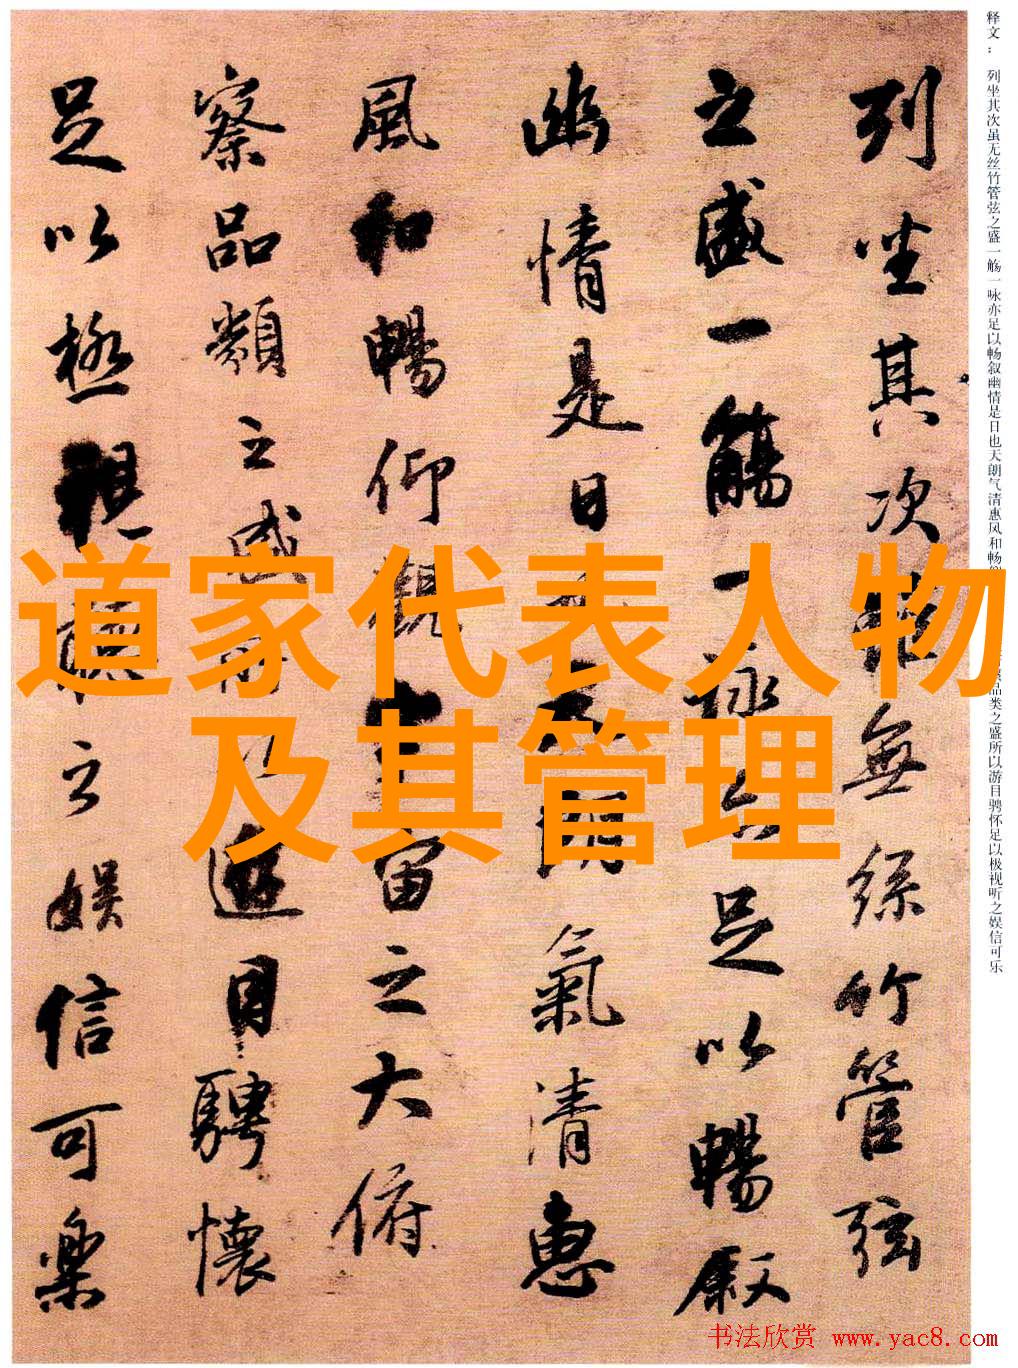 释文：列坐其次虽无丝竹管弦之盛一觞一咏亦足以畅叙幽情是日也天朗气清惠风和畅
品类之盛所以游目骋怀足以极视听之娱信可乐
列坐其次無絲竹管弦
之盛一觴一詠足以暢叙
幽情是日天朗氣清惠
風和暢仰觀宙之大俯
察品類之盛遊目騁懷
足以極視聽之娱信可樂
道家代表人物
及其管理
书法欣赏 www.yac8.com